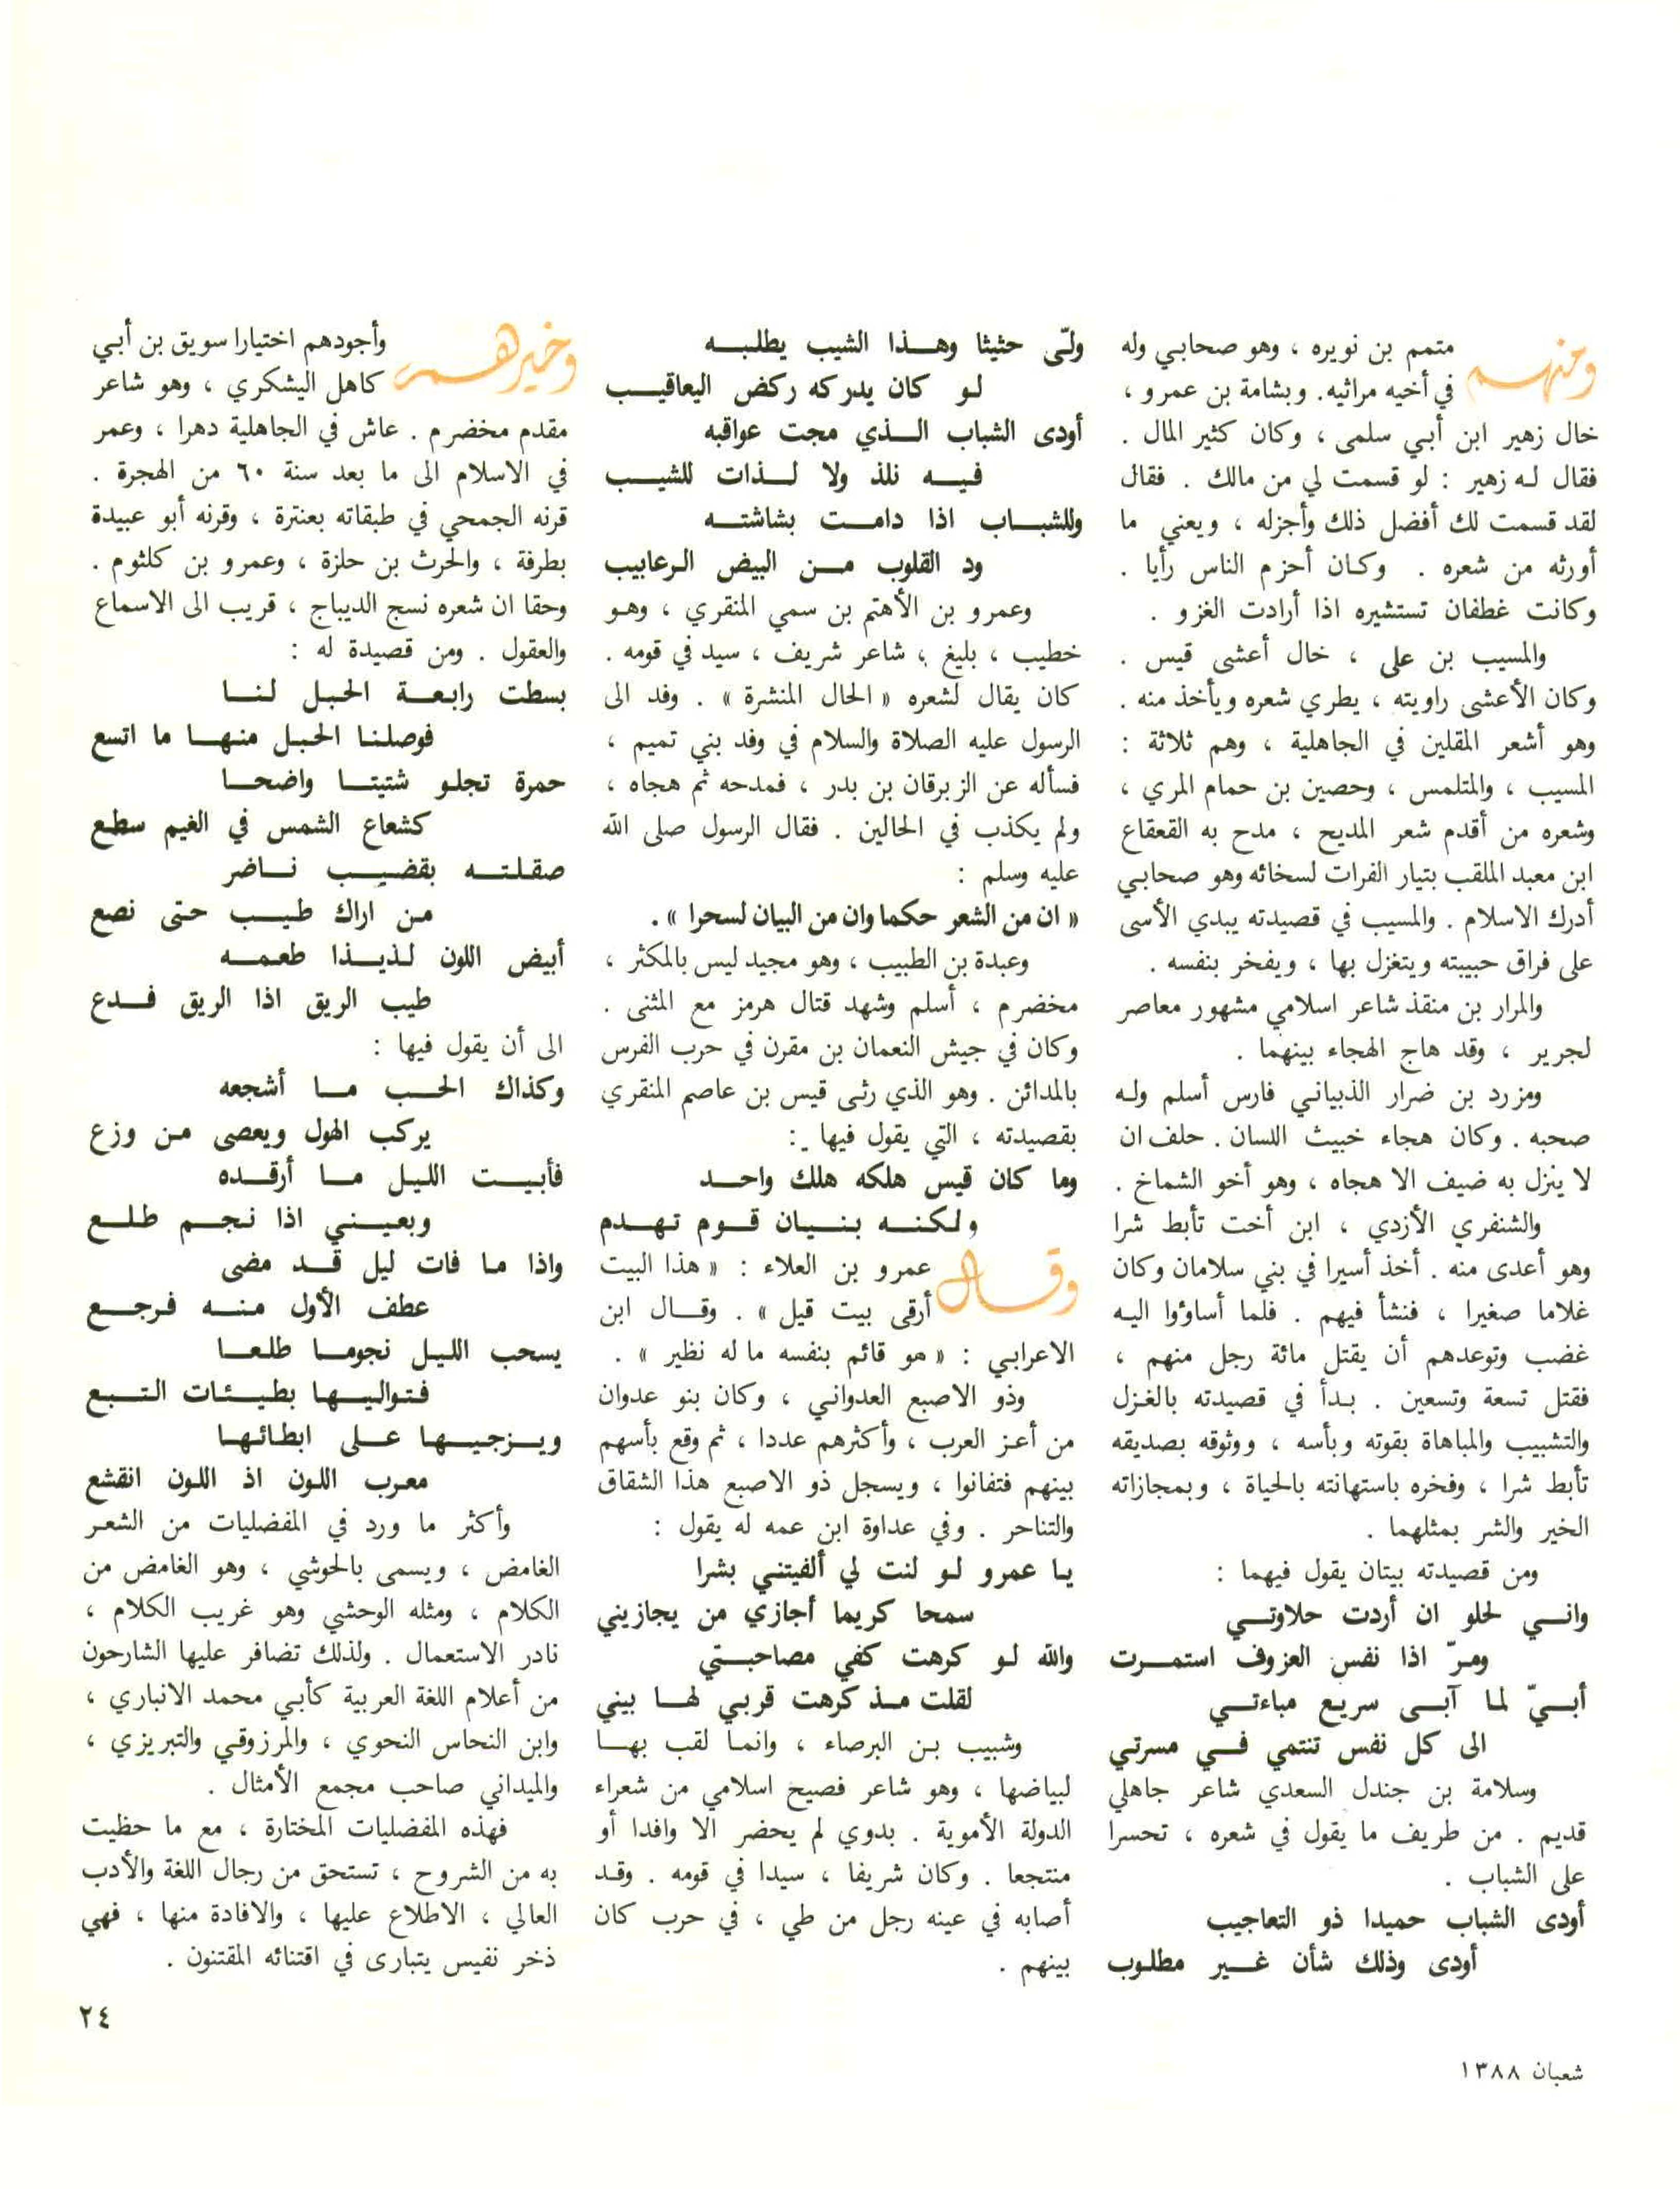 ومنهم متمم بن نويره ، وهو صحابي وله
في أخيه مراثيه. وبشامة بن عمرو ،
خال زهير ابن أبي سلمى ، وكان كثير المال .
فقال له زهير : لو قسمت لي من مالك . فقال
لقد قسمت لك أفضل ذلك وأجزله ، ويعني ما
أورثه من شعره . وكان أحزم الناس رأيا .
وكانت غطفان تستشيره اذا أرادت الغزو .
والمسيب بن على ، خال أعشى قيس .
وكان الأعشى راويته ، يطري شعره ويأخذ منه .
وهو أشعر المقلين في الجاهلية ، وهم ثلاثة :
المسيب ، والمتلمس ، وحصين بن حمام المري ،
وشعره من أقدم شعر المديح ، مدح به القعقاع
ابن معبد الملقب بتيار الفرات لسخائه وهو صحابي
أدرك الاسلام . والمسيب في قصيدته يبدي الأسى
على فراق حبيبته ويتغزل بها ، ويفخر بنفسه .
والمرار بن منقذ شاعر اسلامي مشهور معاصر
لجرير ، وقد هاج الهجاء بينهما .
ومزرد بن ضرار الذبياني فارس أسلم وله
صحبه . وكان هجاء خبيث اللسان . حلف ان
لا ينزل به ضيف الا هجاه ، وهو أخو الشماخ .
والشنفري الأزدي ، ابن أخت تأبط شرا
وهو أعدى منه . أخذ أسيرا في بني سلامان وكان
غلاما صغيرا ، فنشأ فيهم . فلما أساؤوا اليه
غضب وتوعدهم أن يقتل مائة رجل منهم ،
فقتل تسعة وتسعين . بدأ في قصيدته بالغزل
والتشبيب والمباهاة بقوته وبأسه ، ووثوقه بصديقه
تأبط شرا ، وفخره باستهانته بالحياة ، وبمجازاته
الخير والشر بمثلهما .
ومن قصيدته بيتان يقول فيهما :
واني لحلو ان أردت حلاوتي
ومرّ اذا نفس العزوف استمرت
أبيّ لما آبى سريع مباءتي
الى كل نفس تنتمي في مسرتي
وسلامة بن جندل السعدي شاعر جاهلي
قديم . من طريف ما يقول في شعره ، تحسرا
على الشباب .
أودى الشباب حميدا ذو التعاجيب
أودى وذلك شأن غير مطلوب
ولّى حثيثا وهذا الشيب يطلبه
لو كان يدركه ركض اليعاقيب
أودى الشباب الذي مجت عواقبه
فيه نلذ ولا لذات للشيب
وللشباب اذا دامت بشاشته
ود القلوب من البيض الرعابيب
وعمرو بن الأهتم بن سمي المنقري ، وهو
خطيب ، بليغ ، شاعر شريف ، سيد في قومه .
كان يقال لشعره « الحال المنشرة » . وفد الى
الرسول عليه الصلاة والسلام في وفد بني تميم ،
فسأله عن الزبرقان بن بدر ، فمدحه ثم هجاه ،
ولم يكذب في الحالين . فقال الرسول صلى الله
عليه وسلم :
« ان من الشعر حكما وان من البيان لسحرا » .
وعبدة بن الطبيب ، وهو مجيد ليس بالمكثر ،
مخضرم ، أسلم وشهد قتال هرمز مع المثنى .
وكان في جيش النعمان بن مقرن في حرب الفرس
بالمدائن . وهو الذي رثى قيس بن عاصم المنقري
بقصيدته ، التي يقول فيها :
وما كان قيس هلكه هلك واحد
ولكنه بنيان قوم تهدم
وقال عمرو بن العلاء : « هذا البيت
أرقى بيت قيل » . وقال ابن
الاعرابي : « هو قائم بنفسه ما له نظير » .
وذو الاصبع العدواني ، وكان بنو عدوان
من أعز العرب ، وأكثرهم عددا ، ثم وقع بأسهم
بينهم فتفانوا ، ويسجل ذو الاصبع هذا الشقاق
والتناحر . وفي عداوة ابن عمه له يقول :
يا عمرو لو لنت لي ألفيتني بشرا
سمحا كريما أجازي من يجازيني
والله لو كرهت كفي مصاحبتي
لقلت مذ كرهت قربي لها بيني
وشبيب بن البرصاء ، وانما لقب بها
لبياضها ، وهو شاعر فصيح اسلامي من شعراء
الدولة الأموية . بدوي لم يحضر الا وافدا أو
منتجعا . وكان شريفا ، سيدا في قومه . وقد
أصابه في عينه رجل من طي ، في حرب كان
بينهم .
وخيرهم وأجودهم اختيارا سويق بن أبي
كاهل اليشكري ، وهو شاعر
مقدم مخضرم . عاش في الجاهلية دهرا ، وعمر
في الاسلام الى ما بعد سنة ٦٠ من الهجرة .
قرنه الجمحي في طبقاته بعنترة ، وقرنه أبو عبيدة
بطرفة ، والحرث بن حلزة ، وعمرو بن كلثوم .
وحقا ان شعره نسج الديباج ، قريب الى الاسماع
والعقول . ومن قصيدة له :
بسطت رابعة الحبل لنا
فوصلنا الحبل منها ما اتسع
حمرة تجلو شتيتا واضحا
كشعاع الشمس في الغيم سطع
صقلته بقضيب ناضر
من اراك طيب حتى نصع
أبيض اللون لذيذا طعمه
طيب الريق اذا الريق فدع
الى أن يقول فيها :
وكذاك الحب ما أشجعه
يركب الهول ويعصى من وزع
فأبيت الليل ما أرقده
وبعيني اذا نجم طلع
واذا ما فات ليل قد مضى
عطف الأول منه فرجع
يسحب الليل نجوما طلعا
فتواليها بطيئات التبع
ويزجيها على ابطائها
معرب اللون اذ اللون انقشع
وأكثر ما ورد في المفضليات من الشعر
الغامض ، ويسمى بالحوشي ، وهو الغامض من
الكلام ، ومثله الوحشي وهو غريب الكلام ،
نادر الاستعمال . ولذلك تضافر عليها الشارحون
من أعلام اللغة العربية كأبي محمد الانباري ،
وابن النحاس النحوي ، والمرزوقي والتبريزي ،
والميداني صاحب مجمع الأمثال .
فهذه المفضليات المختارة ، مع ما حظيت
به من الشروح ، تستحق من رجال اللغة والأدب
العالي ، الاطلاع عليها ، والافادة منها ، فهي
ذخر نفيس يتبارى في اقتنائه المقتنون .
٢٤
شعبان ١٣٨٨